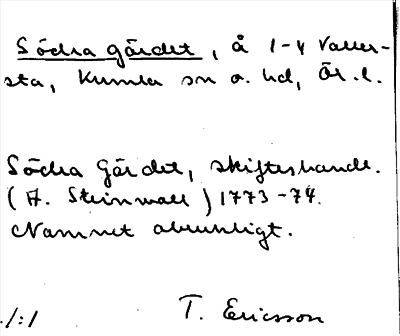 Södra gärdet, å 1-4 Valler-
sta, Kumla sn o. hd, Ör. l.
Södra Gärdet, skifteshandl.
(A. Steinwall) 1773-74.
Namnet obrukligt.
./:/ T. Ericsson